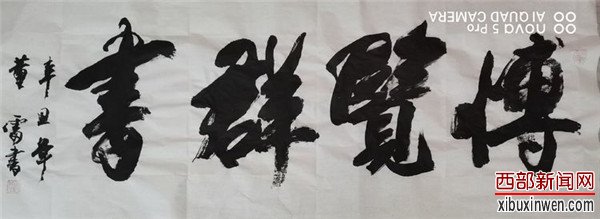 博覽群書
辛丑年
董雷書
nova 5 Pro
AI QUAD CAMERA
西部新闻网
xibuxinwen.com